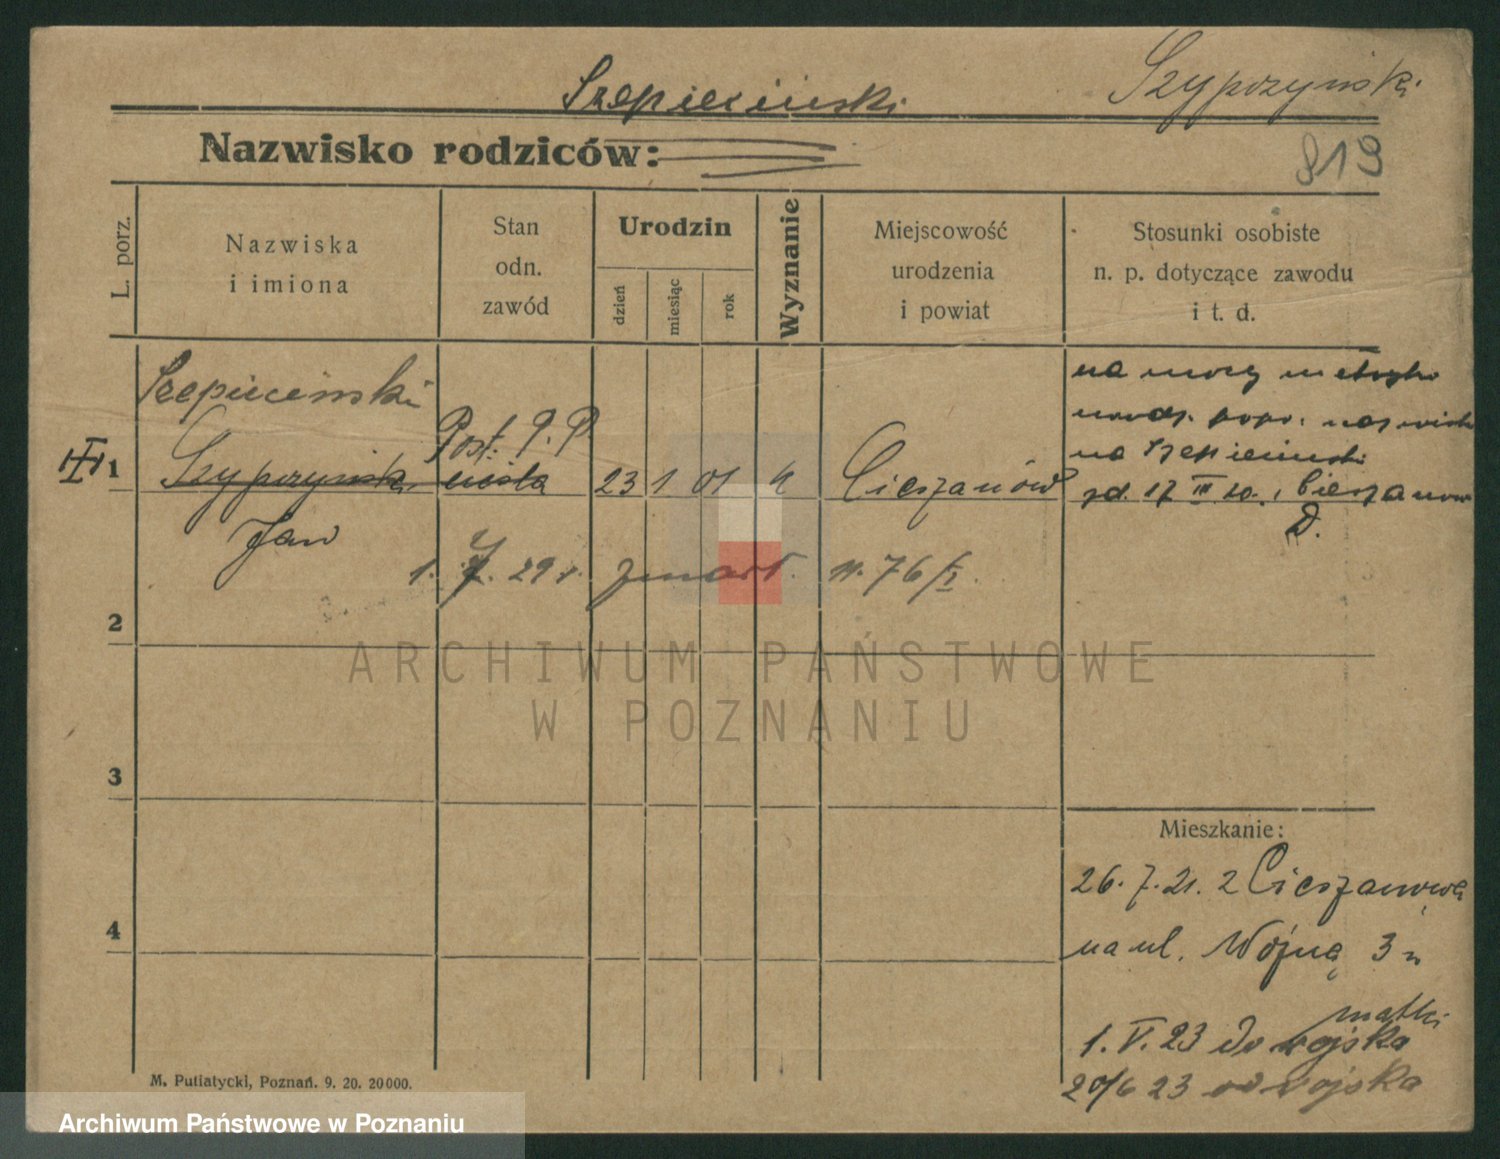 Szepieciński
Szyprzyński
Nazwisko rodziców:
819
L. porz.
Nazwiska
i imiona
Stan
odn.
zawód
Urodzin
dzień
miesiąc
rok
Wyznanie
Miejscowość
urodzenia
i powiat
Stosunki osobiste
n. p. dotyczące zawodu
i t. d.
1
Szepieciński
Szyprzyński
Jan
Post. P. P.
23 1 01 k Cieszanów
na mocy metryki
urodz. popr. nazwisko
na Szepieciński
zd. 17 III 20. Cieszanów
D.
1. 7. 29 r. zmarł. n. 76/I.
2
3
4
ARCHIWUM PAŃSTWOWE
W POZNANIU
Mieszkanie:
26. 7. 21. z Cieszanowa
na ul. Wójną 3
matki
1. V. 23 do wojska
20/6 23 od wojska
M. Putiatycki, Poznań. 9. 20. 20000.
Archiwum Państwowe w Poznaniu